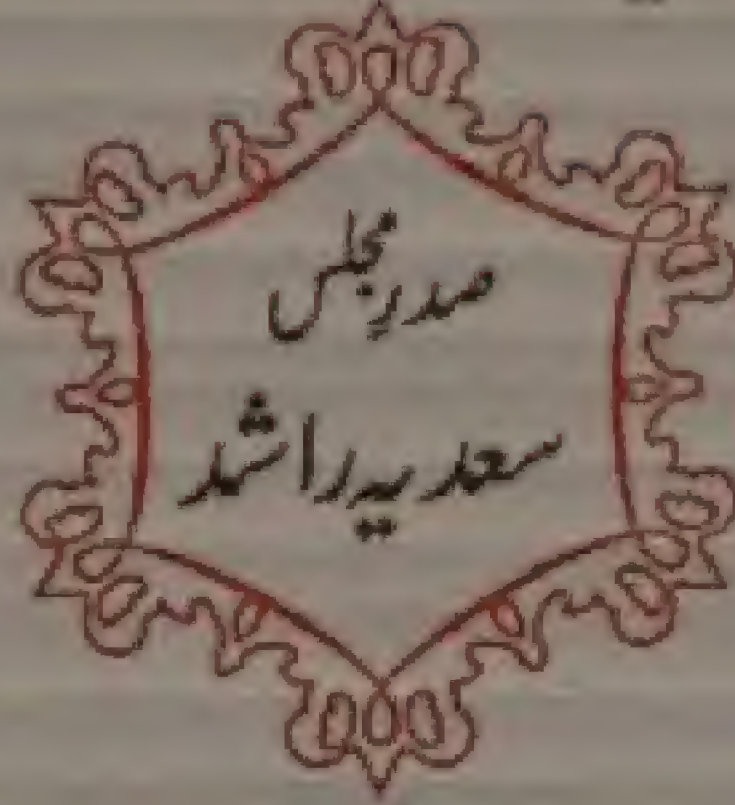 صدرِ مجلس
سعدیہ راشد